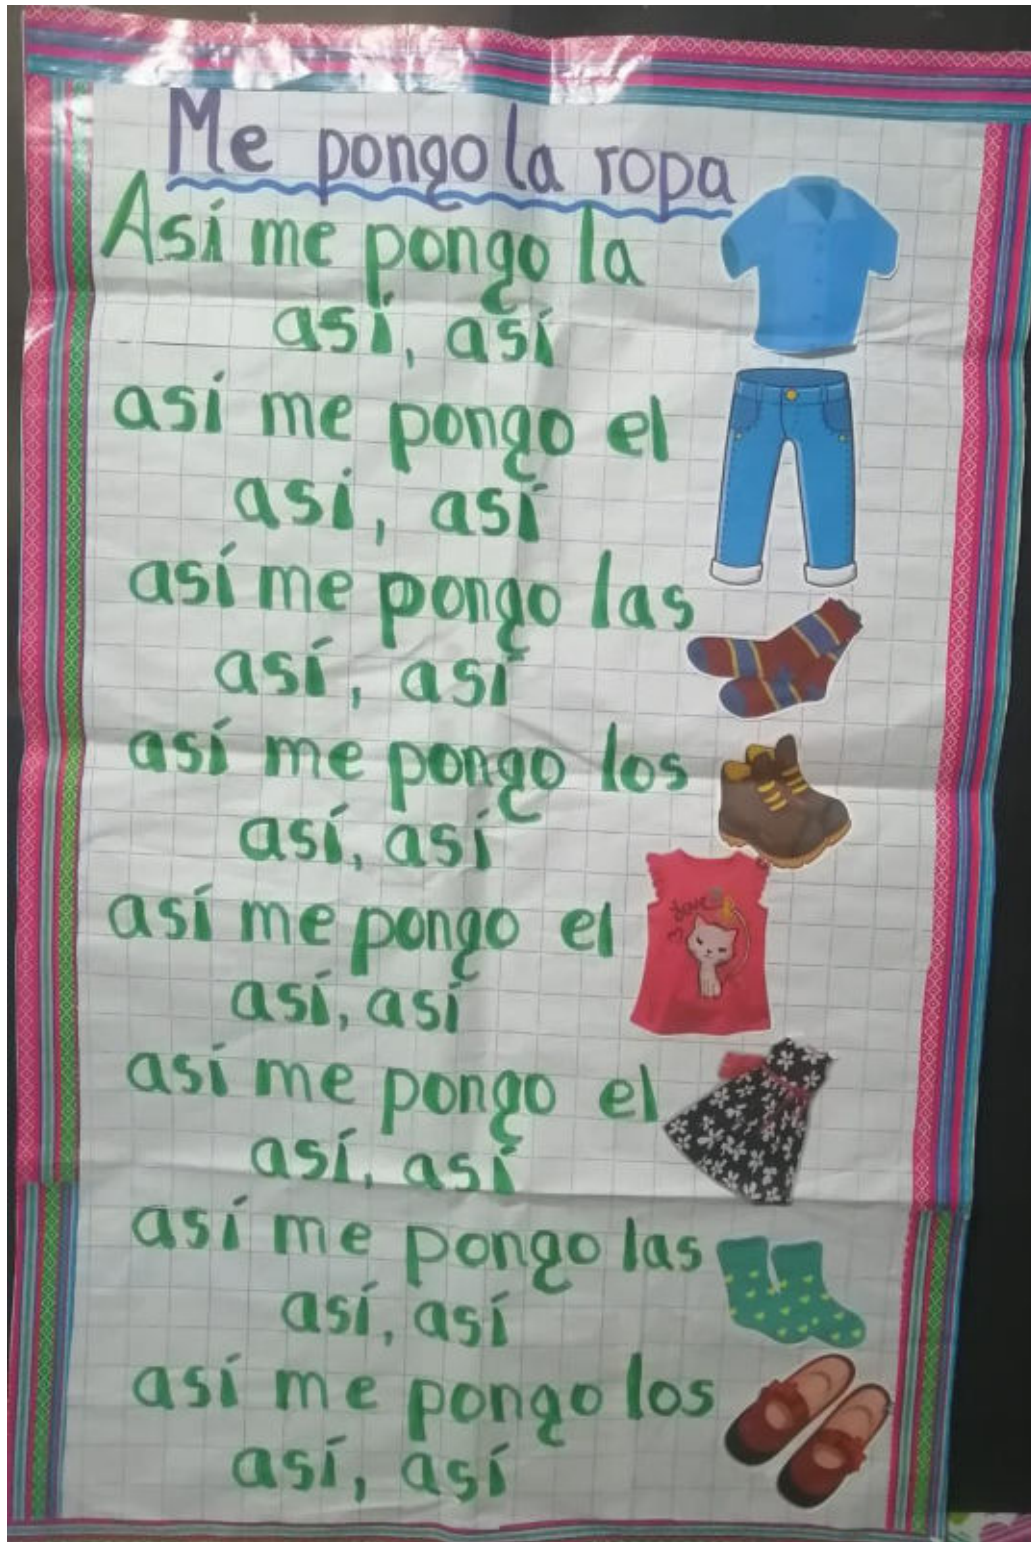 Me pongo la ropa
Así me pongo la
así, así
así me pongo el
así, así
así me pongo las
así, así
así me pongo los
así, así
así me pongo el
así, así
así me pongo el
así, así
así me pongo las
así, así
así me pongo los
así, así